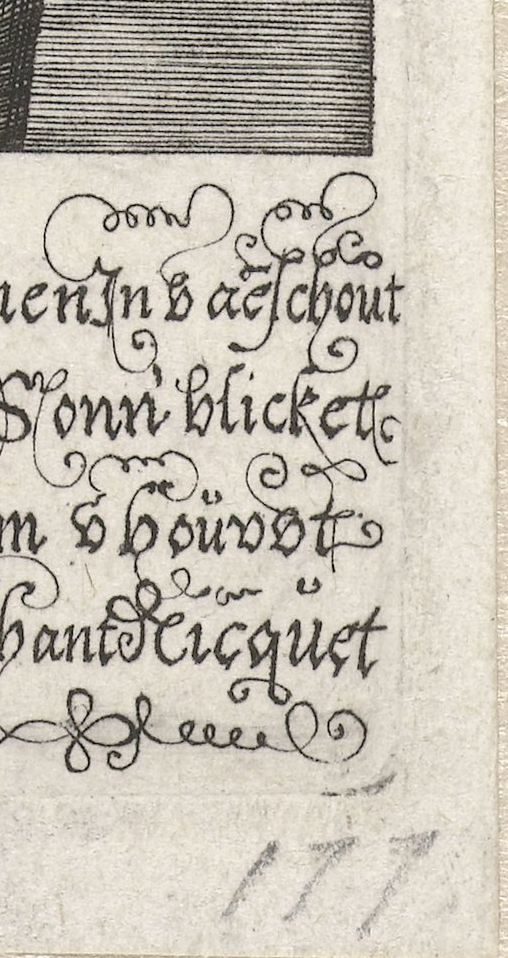 uen In v aēschout
Sonn' blicket
m v hoüvvt
hant Nicquet
177